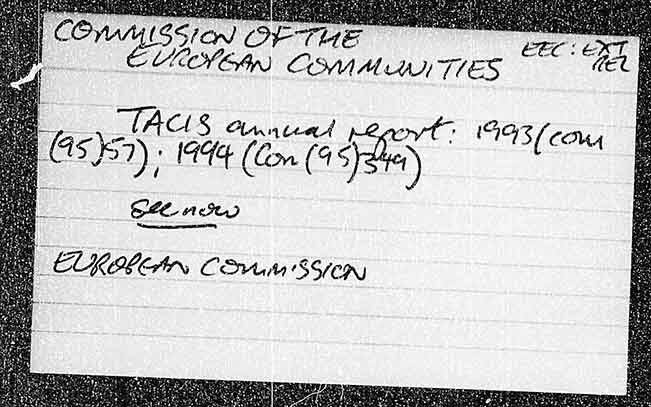 COMMISSION OF THE
EUROPEAN COMMUNITIES
EEC: EXT
REL
TACIS annual report: 1993 (com
(95)57); 1994 (Com (95)349)
see now
EUROPEAN COMMISSION